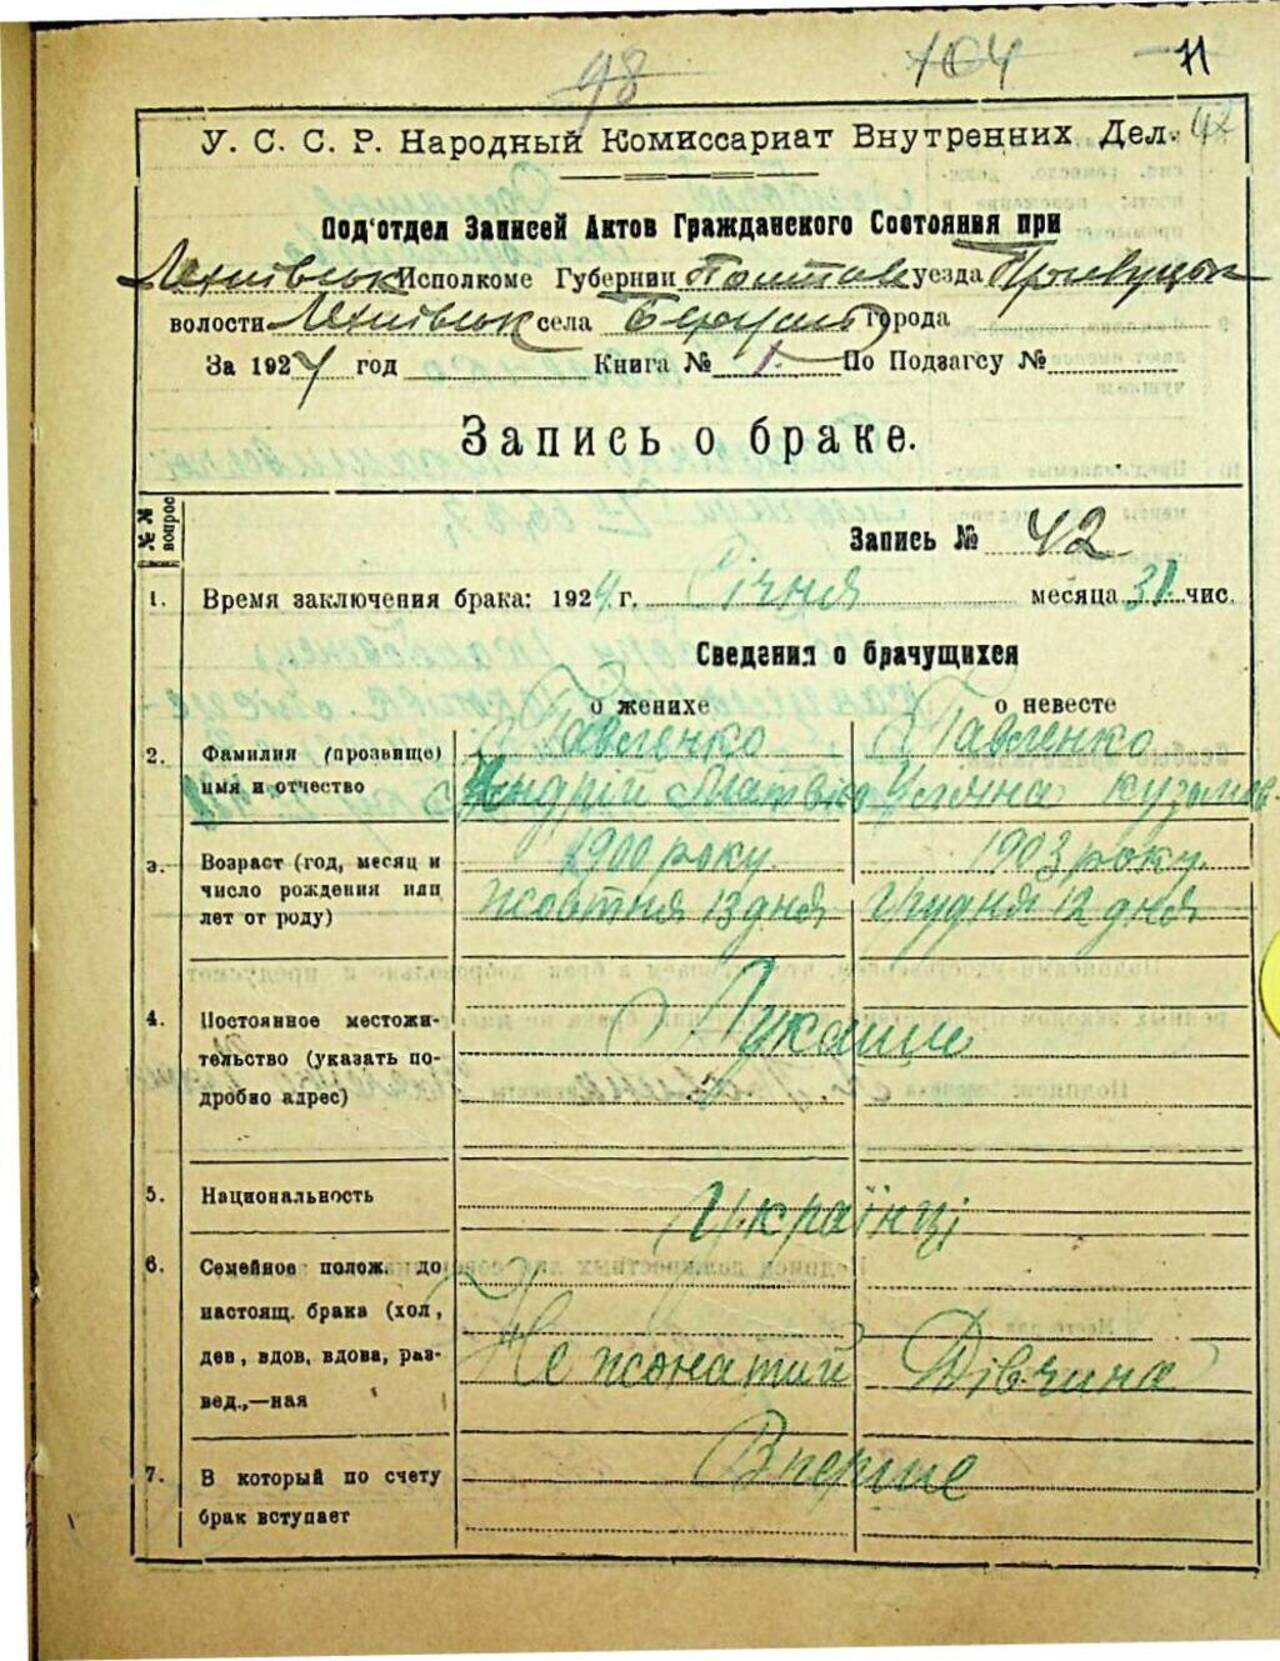 98 104 11
У. С. С. Р. Народный Комиссариат Внутренних Дел. 42
Под'отдел Записей Актов Гражданского Состояния при
Исполкоме Губернии Полтав уезда Прилуцьк
волости села города
За 1924 год Книга № 1. По Подзагсу №
Запись о браке.
№№ вопрос
Запись № 42
1. Время заключения брака: 1924 г. Січня месяца 31 чис.
Сведения о брачущихся
о женихе о невесте
2. Фамилия (прозвище) Павленко Павленко
имя и отчество Андрій Матвієв Уляна Кузьмов.
3. Возраст (год, месяц и 1900 року 1903 року
число рождения или Жовтня 13 дня Грудня 12 дня
лет от роду)
4. Постоянное местожи- Лукаши
тельство (указать по-
дробно адрес)
5. Национальность Українці
6. Семейное полож. до
настоящ. брака (хол,
дев, вдов, вдова, раз- Не жонатий Дівчина
вед.,—ная
7. В который по счету Вперше
брак вступает